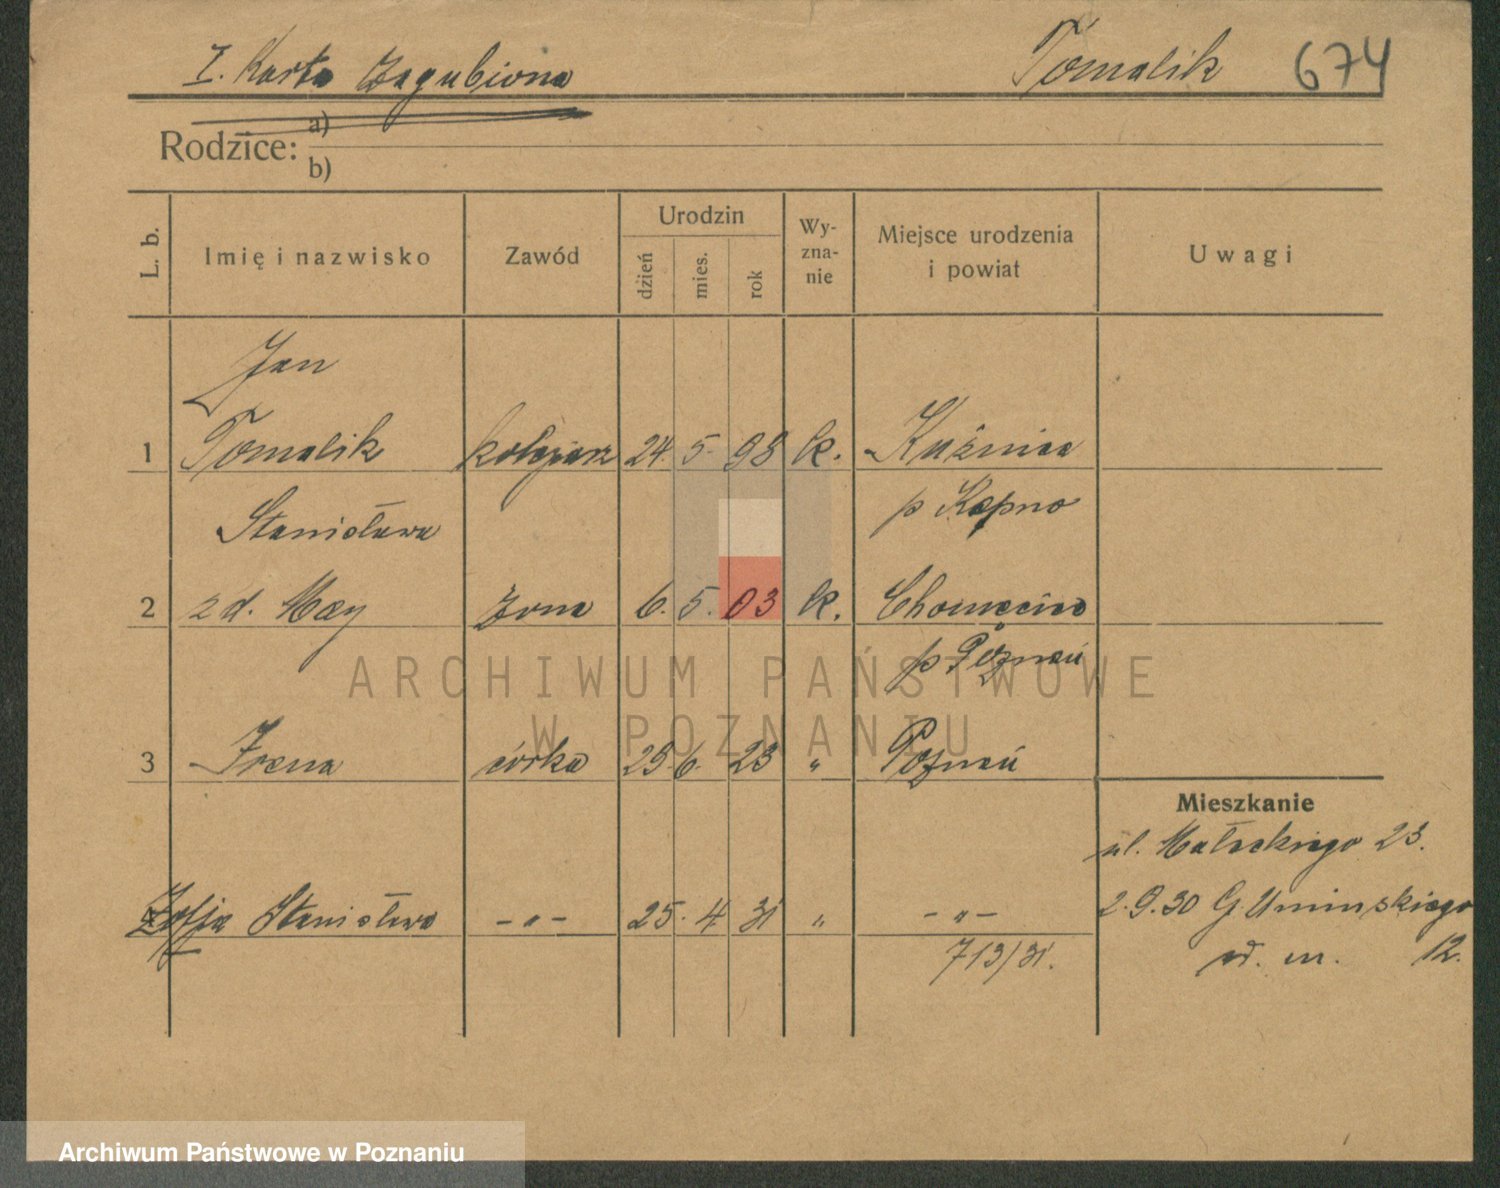 I. Karta Zagubiona Tomalik 674
Rodzice: a)
b)
L. b. Imię i nazwisko Zawód Urodzin dzień mies. rok Wy-zna-nie Miejsce urodzenia i powiat Uwagi
Jan
1 Tomalik kolejarz 24. 5. 98 k. Kuźnica
Stanisława p Kępno
2 z d. May żona 6. 5. 03 k. Chomęcice
p Poznań
ARCHIWUM PAŃSTWOWE
W POZNANIU
3 Irena córka 25. 6. 23 " Poznań
Mieszkanie
ul. Małeckiego 23.
4 Zofja Stanisława -"- 25. 4 31 " -"- 2.9.30 G. Umińskiego
713/31. m. 12.
Archiwum Państwowe w Poznaniu